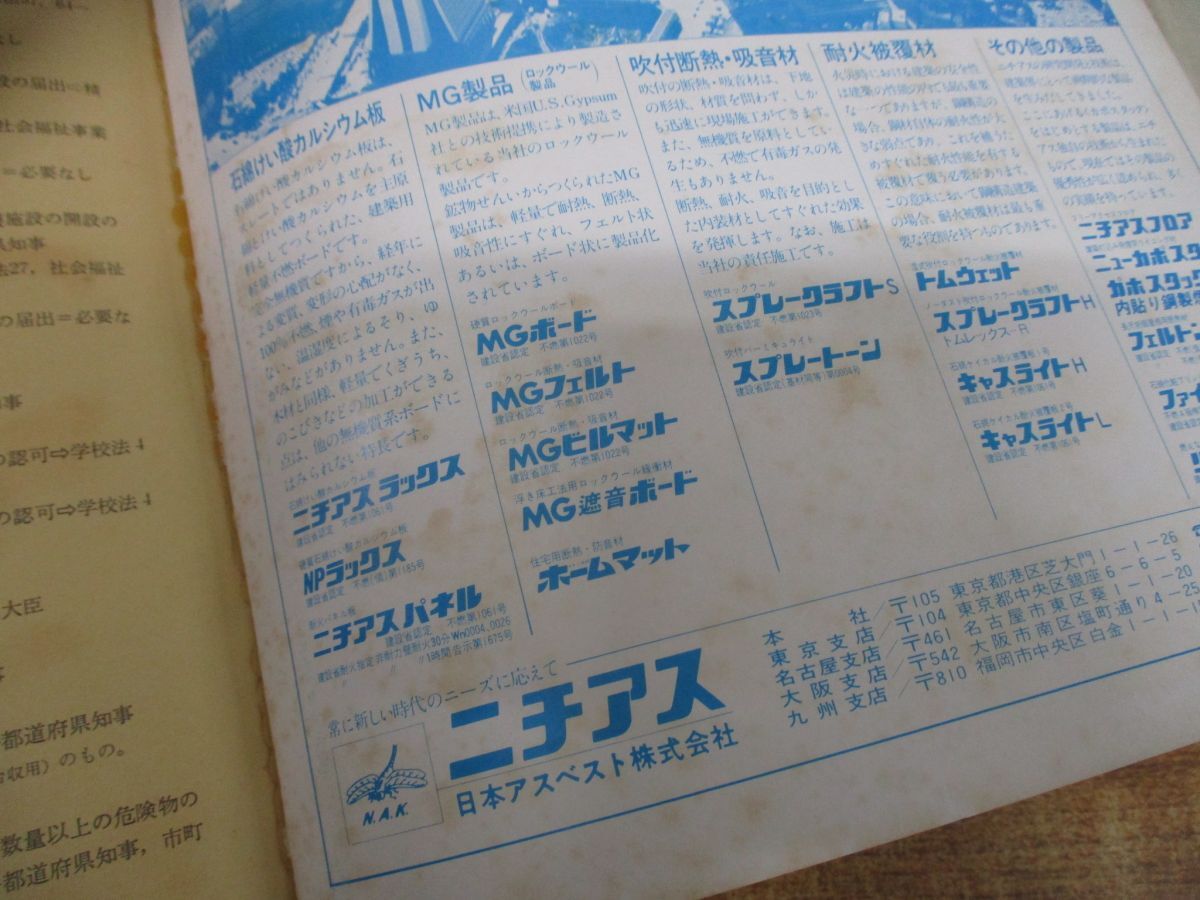 なし
設の届出＝精
社会福祉事業
＝必要なし
施設の開設の
県知事
法27，社会福祉
の届出＝必要な
の認可⇨学校法4
の認可⇨学校法4
大臣
都道府県知事
収用）のもの。
数量以上の危険物の
都道府県知事，市町
石綿けい酸カルシウム板
石綿けい酸カルシウム板は、
スレートではありません。石
綿とけい酸カルシウムを主原
料としてつくられた、建築用
軽量不燃ボードです。
完全無機質ですから、経年に
よる変質、変形の心配がなく、
100%不燃、煙や有毒ガスが出
ない、温湿度によるそり、ゆ
がみなどがありません。また、
木材と同様、軽量でくぎうち、
のこびきなどの加工ができる
点は、他の無機質系ボードに
はみられない特長です。
石綿けい酸カルシウム板
ニチアスラックス
建設省認定 不燃第1061号
硬質石綿けい酸カルシウム板
NPラックス
建設省認定 不燃(個)第1185号
耐火パネル板
ニチアスパネル
建設省認定 不燃第1061号
建設省耐火指定 非耐力壁耐火30分Wn0004、0026
〃 〃 1時間告示第1675号
MG製品（ロックウール製品）
MG製品は、米国U.S.Gypsum
社との技術提携により製造さ
れている当社のロックウール
製品です。
鉱物せんいからつくられたMG
製品は、軽量で耐熱、断熱、
吸音性にすぐれ、フェルト状
あるいは、ボード状に製品化
されています。
硬質ロックウールボード
MGボード
建設省認定 不燃第1022号
ロックウール断熱・吸音材
MGフェルト
建設省認定 不燃第1022号
ロックウール断熱・吸音材
MGビルマット
建設省認定 不燃第1022号
浮き床工法用ロックウール緩衝材
MG遮音ボード
住宅用断熱・防音材
ホームマット
吹付断熱・吸音材
吹付の断熱・吸音材は、下地
の形状、材質を問わず、しか
も迅速に現場施工ができます。
また、無機質を原料としてい
るため、不燃で有毒ガスの発
生もありません。
断熱、耐火、吸音を目的とし
た内装材としてすぐれた効果
を発揮します。なお、施工は
当社の責任施工です。
吹付ロックウール
スプレークラフトS
建設省認定 不燃第1023号
吹付バーミキュライト
スプレートーン
建設省認定(基材同等)第0004号
耐火被覆材
火災時における建築の安全性
は建築の性能の中でも最も重要
な一つでありますが、鋼構造の
場合、鋼材自体の耐火性が大
きな弱点であり、これを補うた
めすぐれた耐火性能を有する
被覆材で覆う必要があります。
この意味において鋼構造建築
の場合、耐火被覆材は最も重
要な役割を持つものであります。
湿式吹付ロックウール耐火被覆材
トムウェット
ノーダスト吹付ロックウール耐火被覆材
スプレークラフトH
トムレックス-R
石綿ケイカル耐火被覆板1号
キャスライトH
建設省認定 不燃第1061号
石綿ケイカル耐火被覆板2号
キャスライトL
建設省認定 不燃第1061号
その他の製品
ニチアスの研究開発と技術は、
建築界にとって画期的な製品
を生みだしてきました。
ここにあげるガボスタックン
をはじめとする製品は、ニチ
アス独自の技術から生まれた
もので、現在ではその製品の
優秀性が広く認められ、多く
の実績を持っています。
フリーアクセスフロア
ニチアスフロア
ニューカポスタ
カポスタック
内貼り鋼製
フェルトン
ファイ
常に新しい時代のニーズに応えて
ニチアス
日本アスベスト株式会社
N.A.K.
本社／〒105 東京都港区芝大門1-1-26
東京支店／〒104 東京都中央区銀座6-6-5
名古屋支店／〒461 名古屋市東区葵1-1-20
大阪支店／〒542 大阪市南区塩町通り4-25
九州支店／〒810 福岡市中央区白金1-1-1